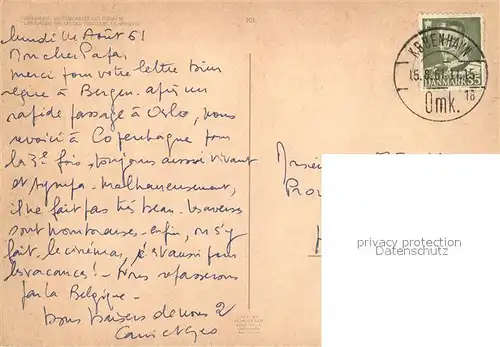 lundi 14 Août 61
Mon cher Papa,
merci pour votre lettre bien
reçue à Bergen. après un
rapide passage à Oslo, nous
revoici à Copenhague pour
la 3e fois, toujours aussi vivant
et sympa. Malheureusement,
il ne fait pas très beau. Les averses
sont nombreuses. enfin, on s'y
fait. le cinéma, c'est aussi pour
les vacances! - Nous repasserons
par la Belgique -
bons baisers de nous 2
202
KØBENHAVN
15.8.61.11.15
Omk. 18
DANMARK 35
Monsie
Pro
privacy protection
Datenschutz